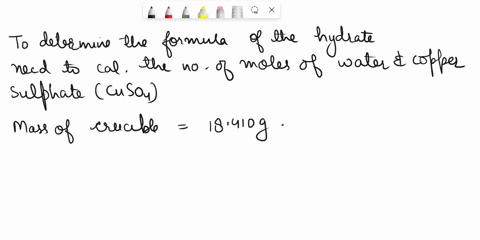 To determine the formula of the hydrate
need to cal. the no. of moles of water & copper
sulphate (CuSO4)
Mass of crucible = 18.410g.